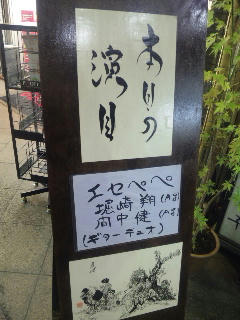 本日の
演目
エセペペ
堀崎 翔
田中 健
(ギターデュオ)